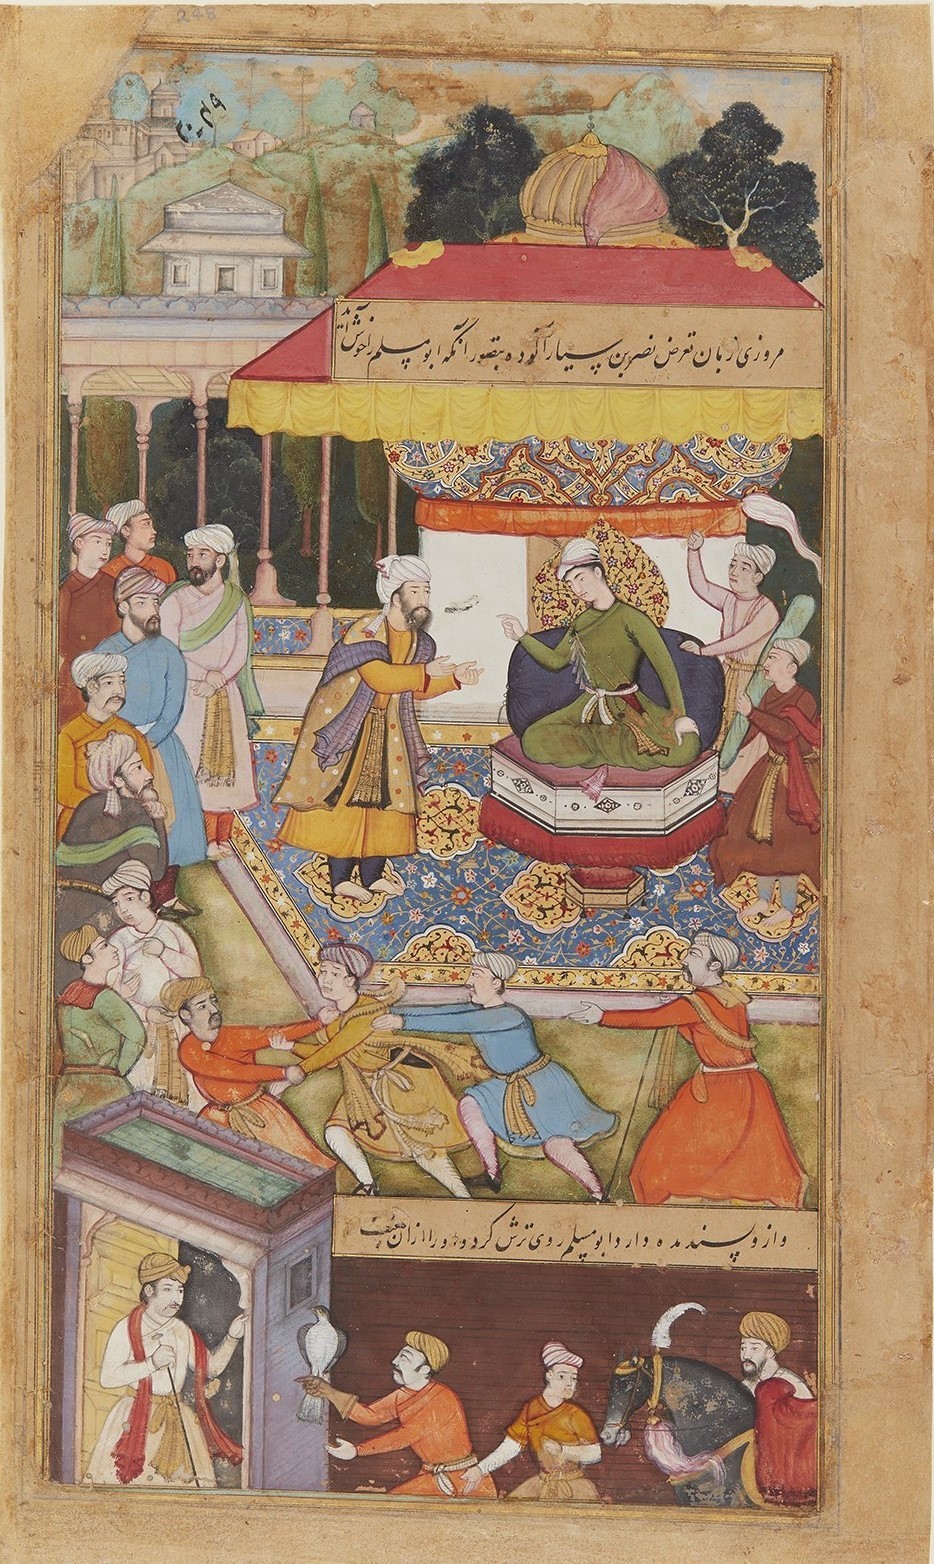 ۲۷۸
مروزی زبان تعرض نصر بن سیار آلوده بتصور آنکه ابومسلم را خوش آید
و ازو پسندیده دارد ابومسلم روی ترش کرد و او را ازان